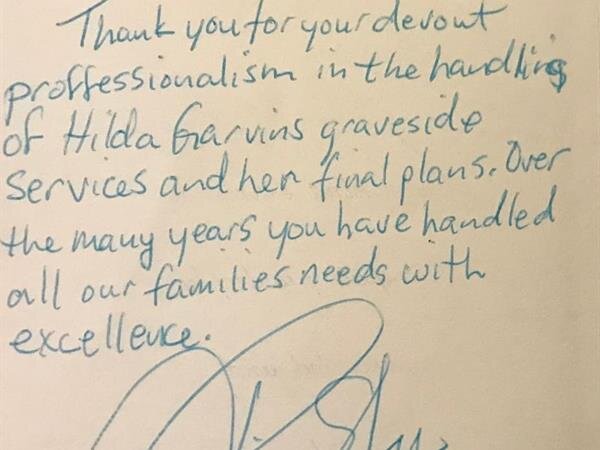 Thank you for your devout
proffessionalism in the handling
of Hilda Garvins graveside
services and her final plans. Over
the many years you have handled
all our families needs with
excellence.